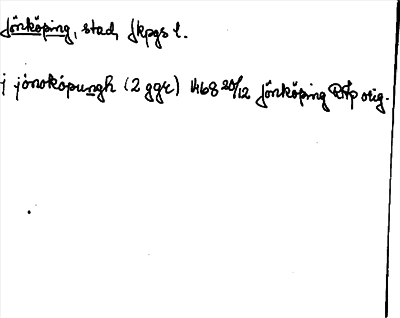 Jönköping, stad, Jkpgs l.
j jönoköpungh (2 ggr) 1468 20/12 Jönköping RAp orig.